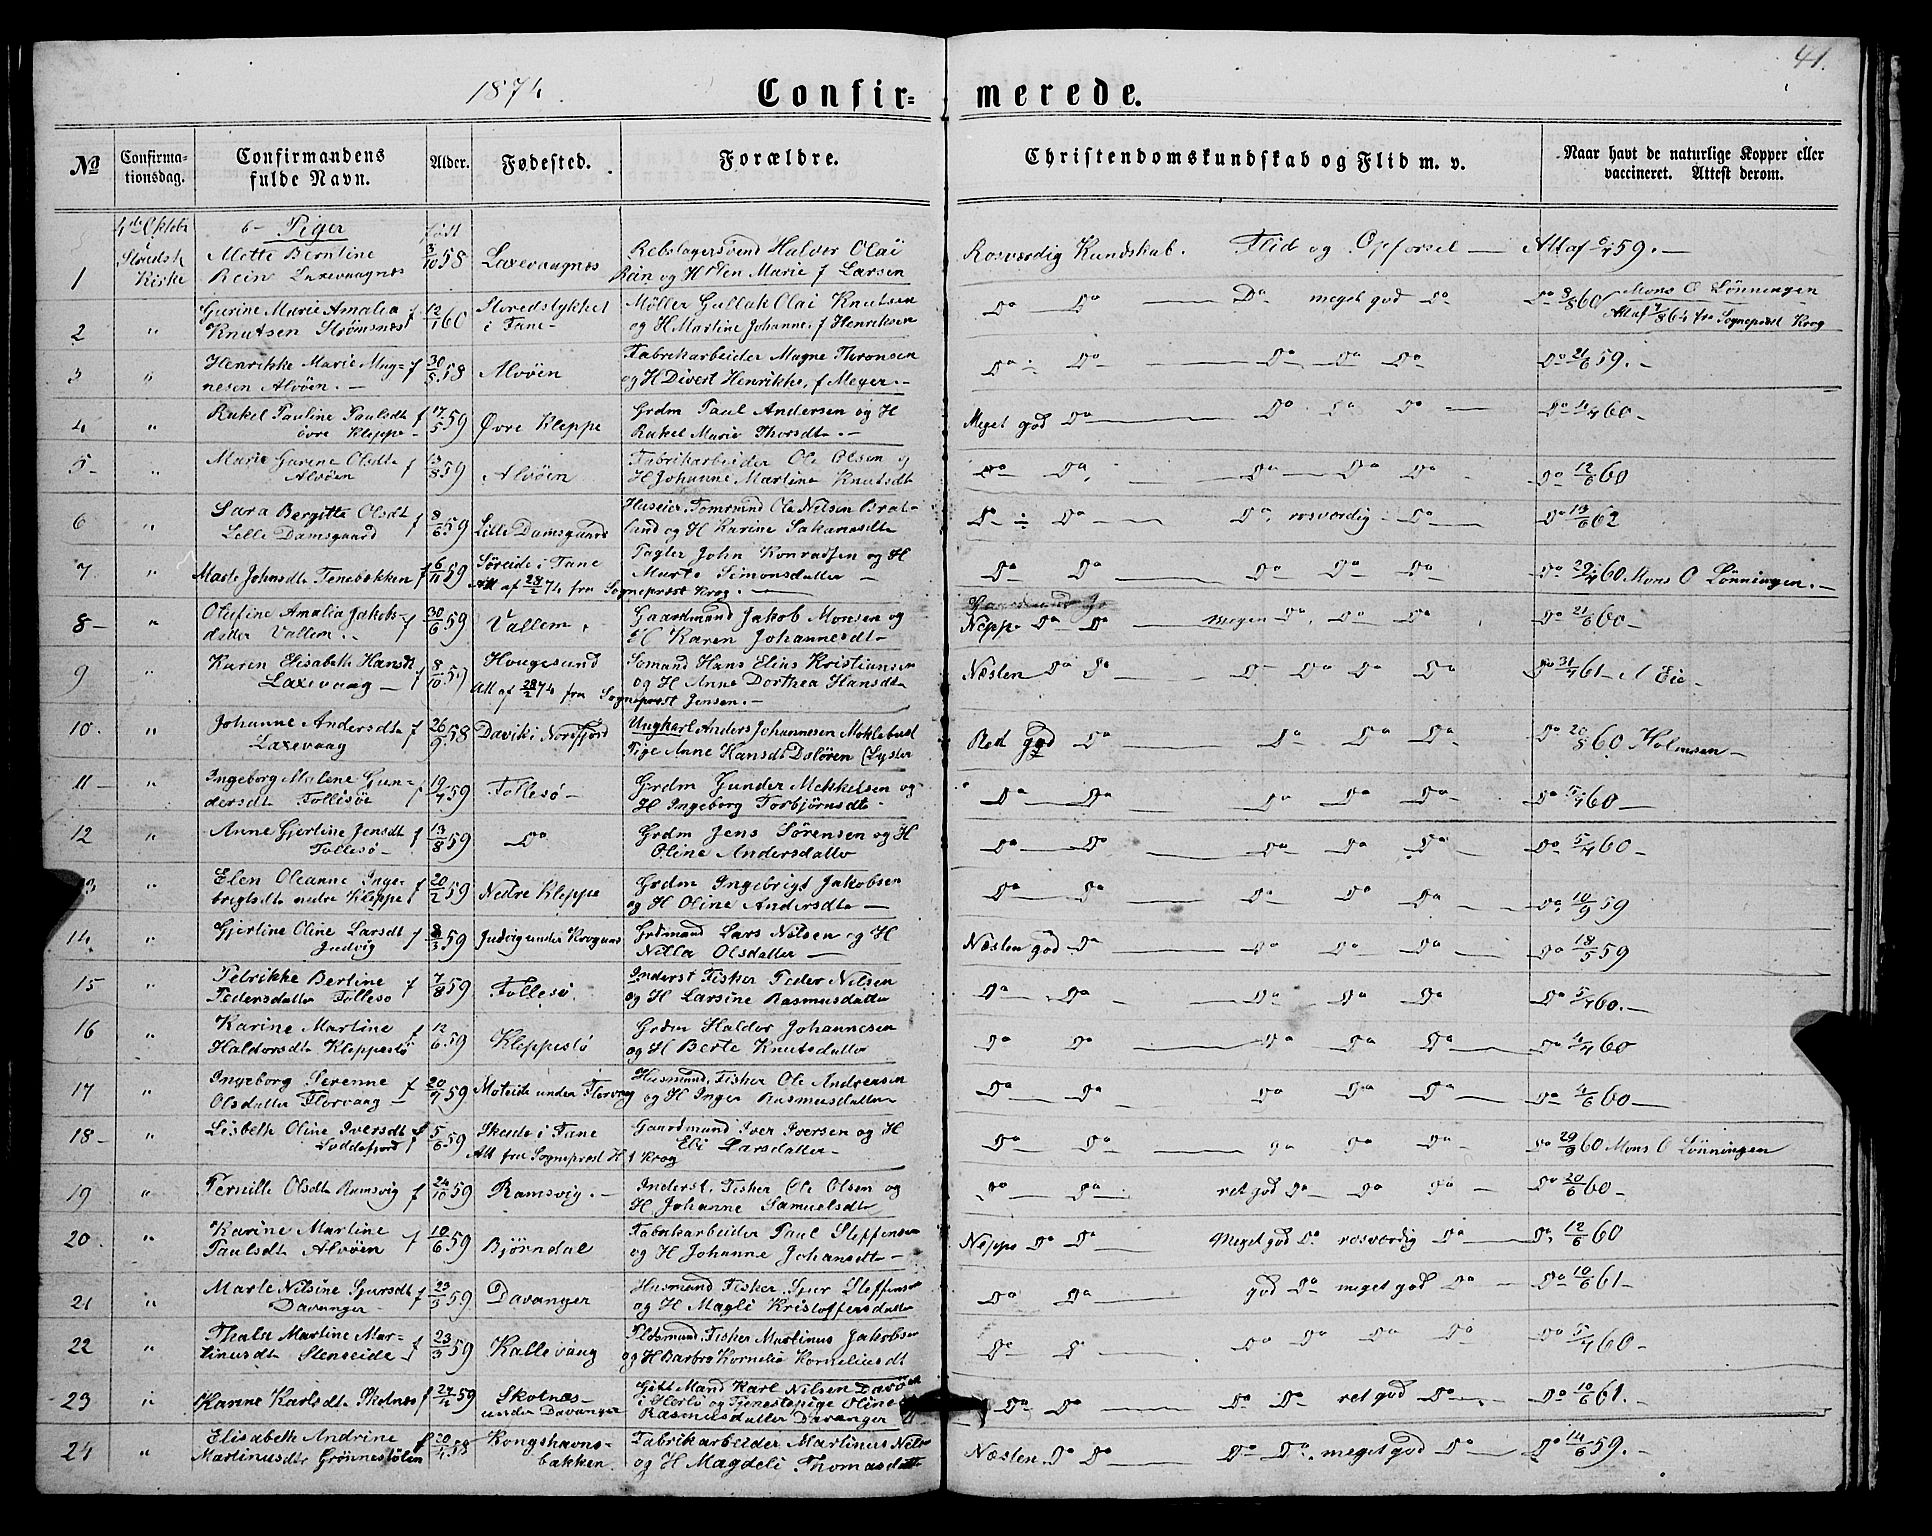 41.
1874.
Confir= merede.
No
Confirma-
tionsdag.
Confirmandens
fulde Navn.
Alder.
Fødested.
Forældre.
Christendomskundskab og Flid m. v.
Naar havt de naturlige Kopper eller
vaccineret. Attest derom.
4de Oktober
Piger
født
1
Kirke
Mette Berntine
Rein Laxevaagnes
3/10 58
Laxevaagnes
Rebslagersvend Halvor Olai
Rein og H Elen Marie f Larsen
Rosværdig Kundskab. Flid og Opførsel —
Att af 6/7 59. —
2 "
Gurine Marie Amalia
Knutsen Strømsnes f
12/1 60
Storedstykket
i Fane
Møller Gullak Olai Knutsen
og H. Martine Johanne, f Henriksen
Do Do — Do meget god Do
Do 8/8 60 Mons O Lønningen
Att af 7/8 64 fra Sogneprest Krog
3 "
Henrikke Marie Mag= f
nesen Alvøen. —
30/5 58
Alvøen
Fabrikarbeider Magne Thronsen
og H Divert Henrikke, f Meyer. —
Do Do — Do Do Do
Do 21/6 59. —
4 "
Rakel Pauline Paulsdt f
øvre Kleppe
17/5 59
Øvre Kleppe
Grdm Paul Andersen og H
Rakel Marie Thorsdt. —
Meget god Do — Do Do Do —
Do 4/4 60 —
5 "
Marie Gurine Olsdt f
Alvøen
13/8 59
Alvøen
Fabrikarbeider Ole Olsen og
H Johanne Martine Knutsdt
Do Do — Do Do Do
Do 12/6 60
6 "
Sara Bergitte Olsdt f
Lille Damsgaard
8/6 59
Lille Damsgaard
Huseier, Tømrmand Ole Nilsen Brat-
land og H Karine Sakariasdt
Do Do — Do, rosværdig Do —
Do 13/6 62
7 "
Marte Johnsdt Tenebekken f
6/11 59
Søreide i Fane
Att af 28/2 74 fra Sogneprest Krog. —
Fagler John Konradsen og H
Marte Simonsdatter —
Do Do — Do Do Do
Do 29/4 60 Mons O Lønningen. —
8 — "
Olufine Amalia Jakobs- f
datter Vallem.
30/6 59
Vallem
Gaardmand Jakob Monsen og
H Karen Johannesdt
Neppe Do Do — megen Do, Do Do
Do 21/6 60 —
9 "
Karen Elisabeth Hansdt f
Laxevaag —
8/10 59
Hougesund
Att af 28/2 74 fra Sogneprest Jensen. —
Sømand Hans Elias Kristiansen
og H Anne Dorthea Hansdt
Næsten Do Do — Do Do Do Do
Do 31/7 61 A Eie —
10. "
Johanne Andersdt f
Laxevaag
26/9 58
Davik i Nordfjord
Ungkarl Anders Johannesen Moklebust
Pige Anne Hansdt Døløren (Lyster
Ret god Do — Do Do Do
Do 20/8 60 Holmsen —
11 — "
Ingeborg Malene Gun- f
dersdt Follesøe
19/4 59
Follesø —
Grdm Gunder Mekkelsen og
H Ingeborg Torbjørnsdt —
Do Do — Do Do Do —
Do 5/4 60 —
12 "
Anne Gjertine Jensdt f
Follesø —
13/8 59
Do
Grdm Jens Sørensen og H
Oline Andersdatter
Do Do — Do Do Do
Do 5/4 60 —
13 "
Elen Oleanne Inge- f
brigtsdt nedre Kleppe
20/2 59
Nedre Kleppe
Grdm Ingebrigt Jakobsen
og H Oline Andersdt —
Do Do — Do Do Do
Do 10/9 59
14. "
Gjertine Oline Larsdt f
Judvig
8/3 59
Judvig under Krogenes
Grdmand Lars Nilsen og H
Nilla Olsdatter —
Næsten god Do — Do Do Do
Do 18/5 59
15 "
Petrikke Bertine f
Pedersdatter Follesø
7/8 59
Follesø.
Inderst Fisker Peder Nilsen
og H Larsine Rasmusdatter
Do Do — Do Do Do
Do 5/4 60. —
16 "
Karine Martine f
Haldorsdt Kleppestø
12/6 59
Kleppestø
Grdm Haldor Johannesen
og H Berte Knutsdatter
Do Do — Do Do Do
Do 4/4 60
17 "
Ingeborg Serenne f
Olsdatter Florvaag —
20/7 59
Moteide under Florvaag
Husmand, Fisker Ole Andreasen
og H Inger Rasmusdatter
Do Do — Do Do Do
Do 4/6 60 —
18 — "
Lisbeth Oline Iversdt f
Loddefjord
5/6 59
Skeide i Fane
Att fra Sogneprest H t Krog
Gaardmand Iver Iversen og H
Eli Larsdatter —
Do Do — Do Do Do
Do 29/9 60 Mons O Lønningen
19 "
Pernille Olsdt Ramsvig f
24/10 59
Ramsvig. —
Inderst, Fisker Ole Olsen og
H Johanne Samuelsdt
Do Do — ret god Do Do Do —
Do 20/6 60 —
20. "
Karine Martine f
Paulsdt Alvøen
10/6 59
Bjørndal
Fabrikarbeider Paul Steffensen
og H Johanne Johansdt —
Neppe Do Do Meget god Do rosværdig Do —
Do 12/6 60
21 "
Marte Nilsine Sjursdt f
Davanger
23/3 59
Davanger
Husmand Fisker Sjur Steffensen
og H Magli Kristoffersdatter
Do Do — god Do meget god Do —
Do 10/6 61 —
22 "
Thala Martine Mar- f
tinusdt Stenseide
23/3 59
Kallevaag
Pldsmand, Fisker Martinus Jakobsen
og H Barbro Kornelia Korneliusdt
Do Do — Do Do Do Do —
Do 5/4 60
23 "
Karine Karlsdt Skolnes f
24/4 59
Skolnes
under Davanger
Gift Mand Karl Nilsen
og Tjenestepige Oline
Rasmusdatter Davanger
Do Do — Do Do ret god Do —
Do 10/6 61.
24 "
Elisabeth Andrine f
Martinusdtr Grønnestølen
20/4 58
Kongshavns-
bakken.
Fabrikarbeider Martinus Nils
og H Magdeli Thomasdatter
Næsten Do Do Do Do, meget god Do —
Do 14/6 59. —